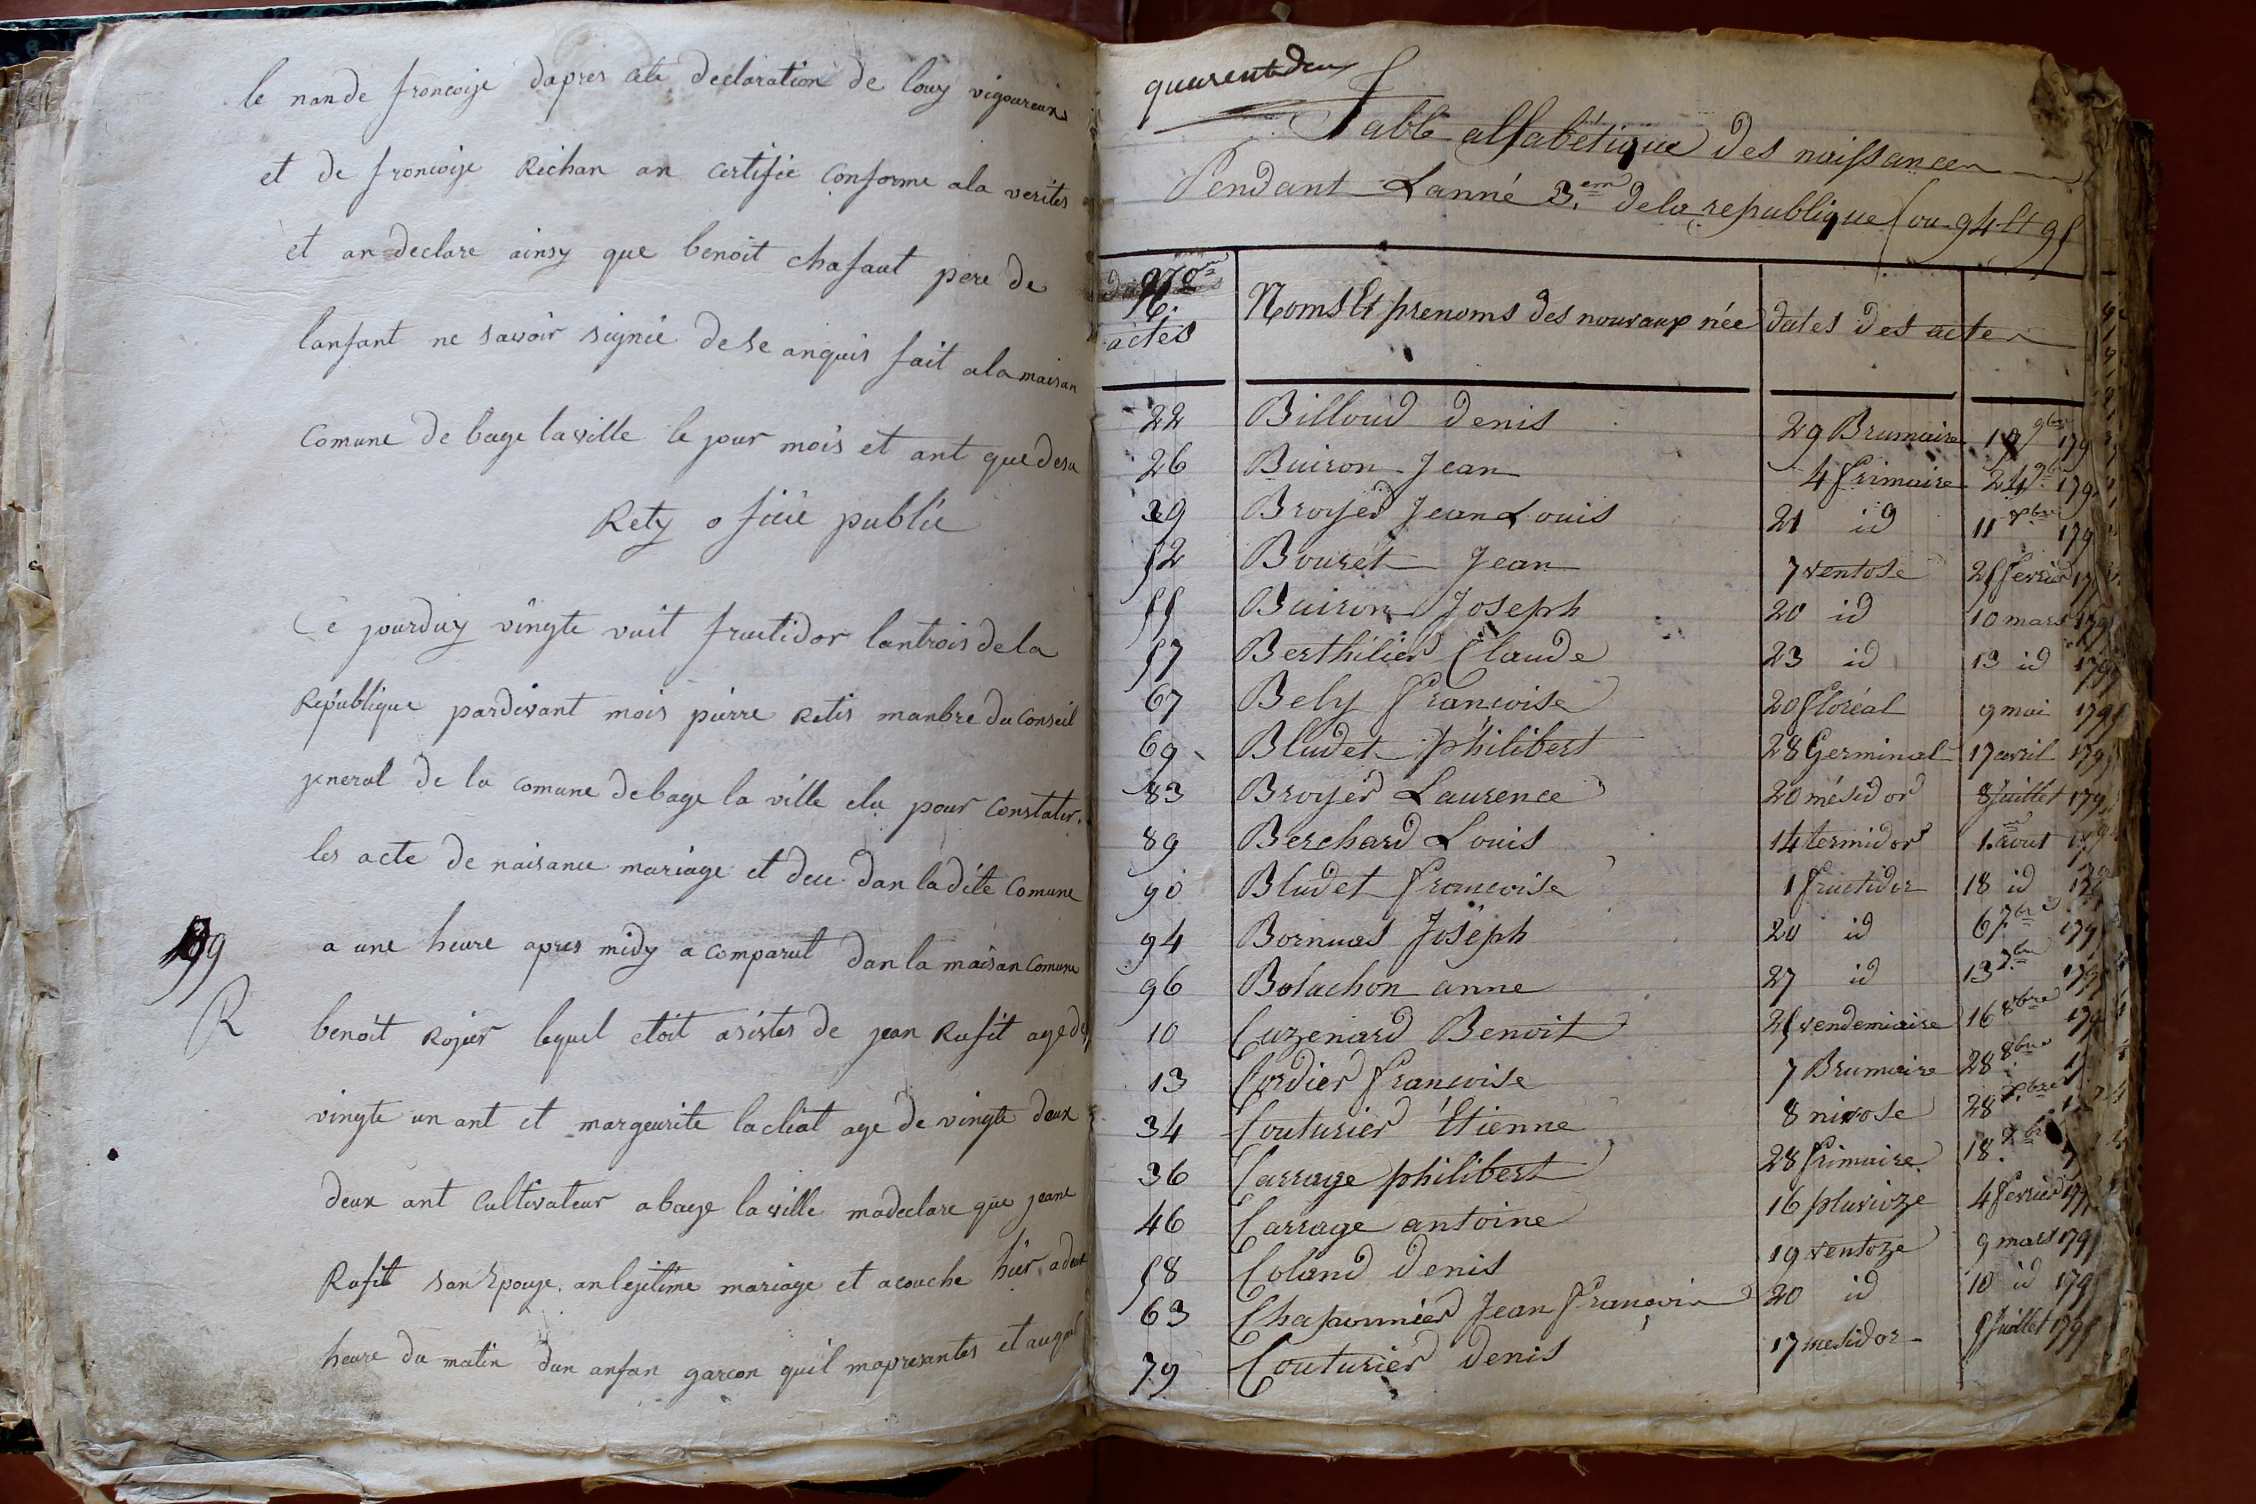 le nande froncoise dapres cete declaration de louy vigoureux
et de froncoise Richan an certifie conforme ala verites
et an declare ainsy que benoit chafaut pere de
lanfant ne savoir signié dese anquis fait ala maisan
Comune de bage laville le jour mois et ant que desu
Rety oficié publie
Ce jourduy vingte vuit fructidor lantrois dela
Republique pardevant mois pierre Retis manbre du Conseil
jeneral de la comune debage la ville elu pour Constater
les acte de naisance mariage et dece dan ladite Comune
99
a une heure apres midy a comparut dan la maisan Comune
R
benoit Rojier lequel etoit asistes de jean Rufit age de
vingte un ant et margeurite lacliat age de vingte deux
deux ant Cultivateur abage laville madeclare que jeane
Rufit san Epouze anlejitime mariage et acouche hier a deux
heure du matin dun anfan garcon quil mapresantes et auquel
quarentedeux
Table alfabétique des naissances
Pendant Lanné 3.em dela republique (ou 94 et 95
N.
actes
Noms Et prenoms des nouvaux née
dates des actes
22 Billoud denis 29 Brumaire 19 9bre 179
26 Buiron Jean 4 frimaire 24 9bre 179
29 Broyer Jean Louis 21 id 11 xbre 179
52 Bouret Jean 7 ventose 25 fevrier 17
55 Buiron Joseph 20 id 10 mars 179
57 Berthilier Claude 23 id 13 id 1795
67 Bely francoise 20 floréal 9 mai 1795
69 Bludet philibert 28 Germinal 17 avril 1795
83 Broyer Laurence 20 mésidor 8 Juillet 179
89 Berchard Louis 14 termidor 1.er aout 179
90 Bludet francoise 1 fructidor 18 id 179
94 Bornuas Joseph 20 id 6 7bre 179
96 Bolachon anne 27 id 13 7bre 179
10 Cuzenard Benoit 25 vendemiaire 16 8bre 179
13 Cordier francoise 7 Brumaire 28 8bre 17
34 Couturier Etienne 8 nivose 28 xbre
36 Carrage philibert 28 frimaire 18 xbre
46 Carrage antoine 16 pluvioze 4 fevrier 179
58 Coland denis 19 ventoze 9 mars 1795
63 Chaponnier Jean francois 20 id 10 id 1795
79 Couturier denis 17 mesidor 5 Juillet 1795